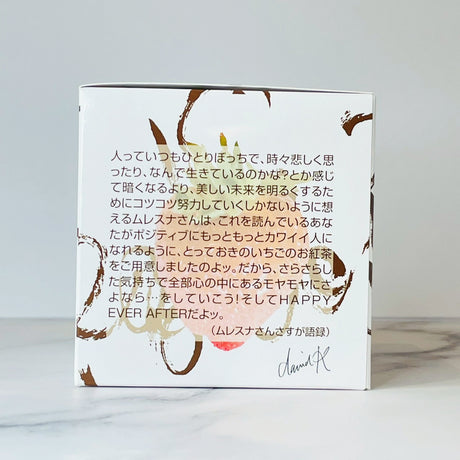 人っていつもひとりぼっちで、時々悲しく思
ったり、なんで生きているのかな?とか感じ
て暗くなるより、美しい未来を明るくするため
にコツコツ努力していくしかないように想
えるムレスナさんは、これを読んでいるあな
たがポジティブにもっともっとカワイイ人に
なれるように、とっておきのいちごのお紅茶
をご用意しましたのよッ。だから、さらさらし
た気持ちで全部心の中にあるモヤモヤにさ
よなら…をしていこう!そしてHAPPY
EVER AFTERだよッ。
(ムレスナさんさすが語録)
david K